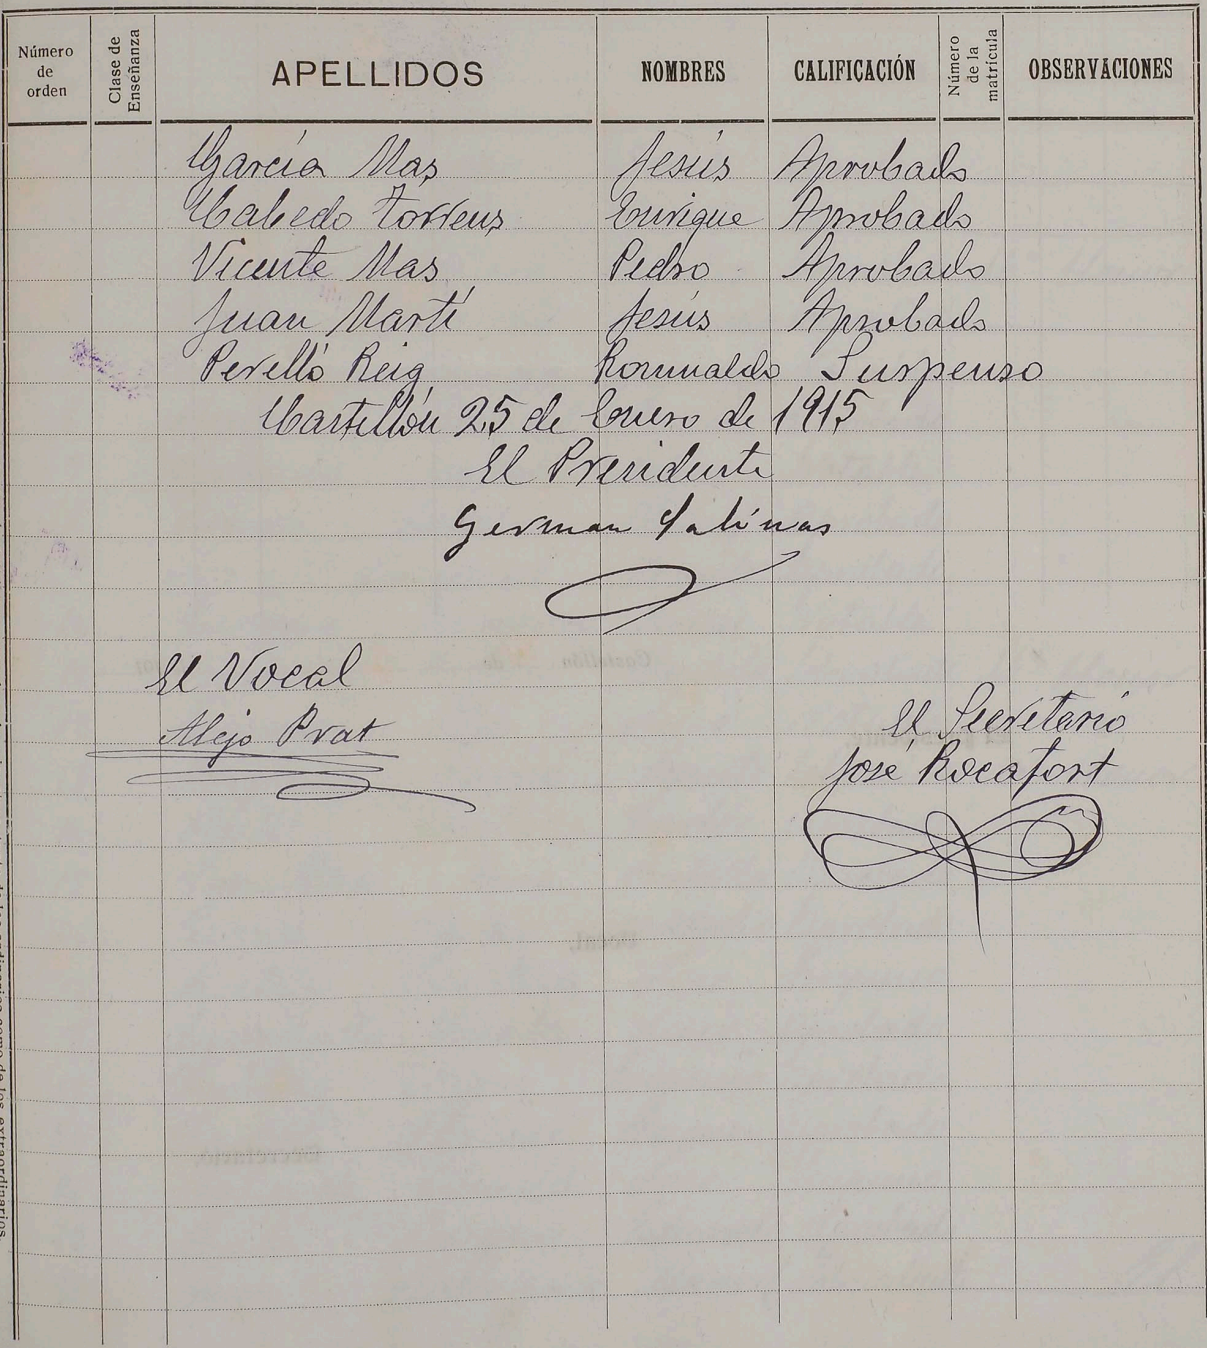 Número de orden Clase de Enseñanza APELLIDOS NOMBRES CALIFICACIÓN Número de la matrícula OBSERVACIONES
García Mas Jesús Aprobado
Cabedo Torrens Enrique Aprobado
Vicente Mas Pedro Aprobado
Juan Martí Jesús Aprobado
Perelló Reig Romualdo Suspenso
Castellón 25 de Enero de 1915
El Presidente
German Salinas
El Vocal
Alejo Prat
El Secretario
José Rocafort